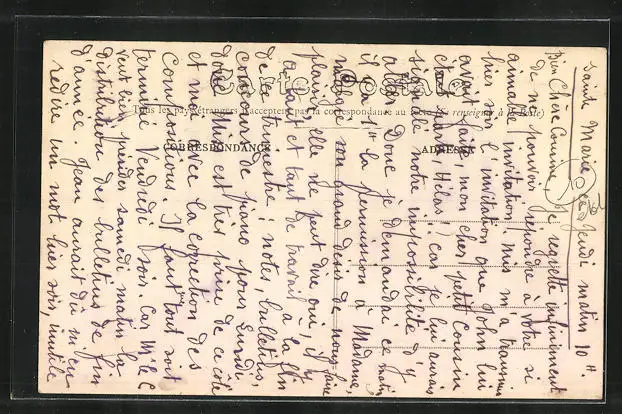 Sainte Marie, ce Jeudi matin 10 H.
Bien Chère Cousine, je regrette infiniment
de ne pouvoir répondre à votre si
aimable invitation; mis m'a transmis
hier soir l'invitation que John lui
avait faite, mon cher petit Cousin
et moi Hélas! car je lui avais
signalé notre impossibilité d'y
aller. Donc je demandai ce matin
la permission à Madame,
malgré son grand désir de nous faire
plaisir, elle ne peut dire oui, il y
a tant et tant de travail à la fin
de ce trimestre; notes, bulletins,
concours de piano pour Lundi
donc this est très prise de ce côté
et moi avec la correction des
Compositions. Il faut tout soit
terminé Vendredi soir. Car M. le C
veut bien présider samedi matin la
distribution des bulletins de fin
d'année. Jean aurait dû m'en
redire un mot hier soir, inutile
Carte Postale
Tous les pays étrangers n'acceptent pas la correspondance au recto (Se renseigner à la Poste)
CORRESPONDANCE
ADRESSE